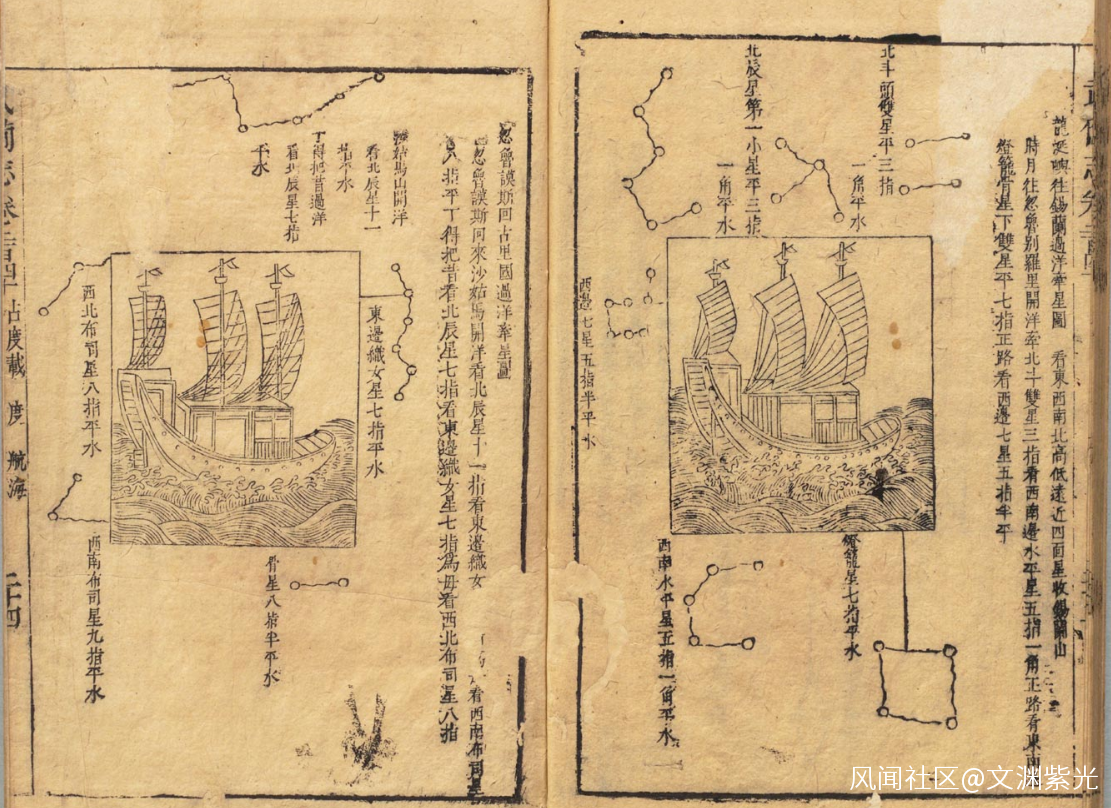 龍涎嶼往錫蘭過洋牽星圖 看東西南北高低遠近四面星收錫蘭山
時月往忽魯別羅里開洋牽北斗雙星三指看西南邊水平星五指一角正路看東南
燈籠骨星下雙星平七指正路看西邊七星五指半平
北斗頭雙星平三指
一角平水
北辰星第一小星平三指
一角平水
西邊七星五指半平水
燈籠星七指平水
西南水平星五指一角平水
忽魯謨斯回古里國過洋牽星圖
忽魯謨斯回來沙姑馬開洋看北辰星十一指看東邊織女 看西南布司星
八指平丁得把昔看北辰星七指看東邊織女星七指為母看西北布司星八指
姑馬山開洋
看北辰星十一
指水
丁得把昔過洋
看北辰星七指
平水
東邊織女星七指平水
西北布司星八指平水
西南布司星九指平水
骨星八指半平水
占度載 度 航海 二十四
风闻社区@文渊紫光